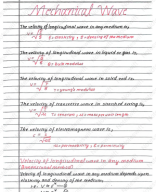 Mechanical Wave
The velocity of longitudinal wave in any medium is,
v = √E/ρ E = elasticity, ρ = density of the medium
The velocity of longitudinal wave in liquid or gas is,
B = bulk modulus
The velocity of longitudinal wave in solid rod is,
Y = young's modulus
The velocity of transverse wave in stretched string is,
T = tension, m = mass per unit length
The velocity of electromagnetic wave is,
μ = permeability, ε = permittivity
Velocity of longitudinal wave in any medium
(Dimensional method)
Velocity of longitudinal wave in any medium depends upon
elasticity and density of the medium,